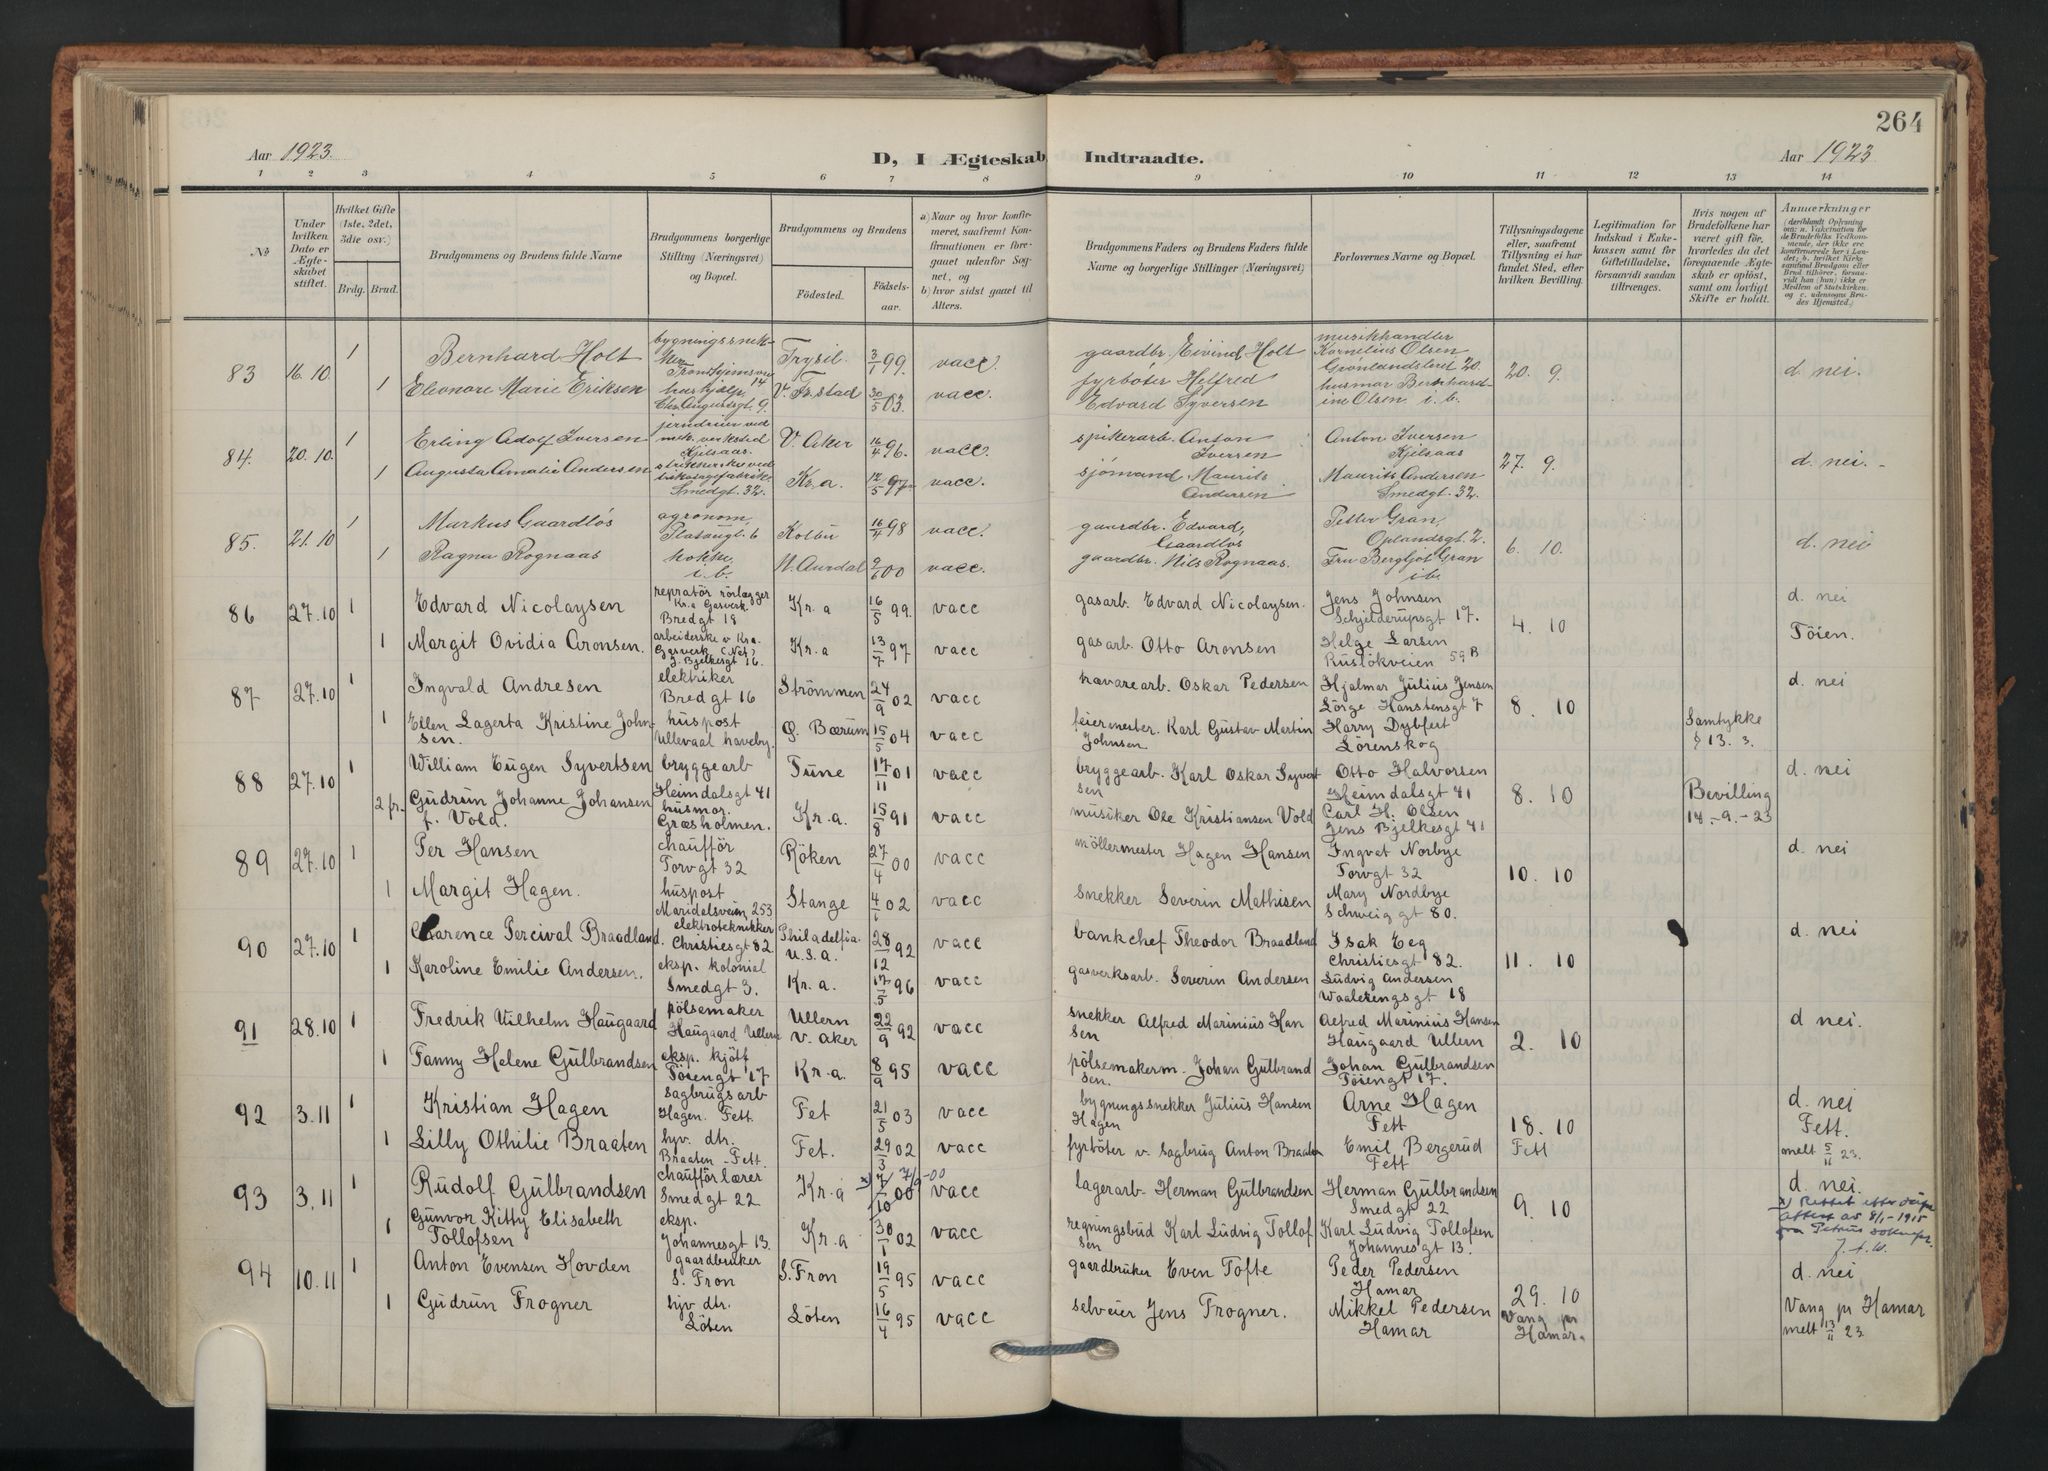 264
Aar 1923.
D, I Ægteskab Indtraadte.
Aar 1923
1 2 3 4 5 6 7 8 9 10 11 12 13 14
№
Under hvilken Dato er Ægteskabet stiftet.
Hvilket Gifte (1ste, 2det, 3die osv.)
Brdg. Brud.
Brudgommens og Brudens fulde Navne
Brudgommens borgerlige Stilling (Næringsvei) og Bopæl.
Brudgommens og Brudens
Födested.
Födselsaar.
a) Naar og hvor konfirmeret, saafremt Konfirmationen er foregaaet udenfor Sognet, og
b) hvor sidst gaaet til Alters.
Brudgommens Faders og Brudens Faders fulde Navne og borgerlige Stillinger (Næringsvei)
Forlovernes Navne og Bopæl.
Tillysningsdagene eller, saafremt Tillysning ei har fundet Sted, efter hvilken Bevilling.
Legitimation for Indskud i Enkekassen samt for Giftetilladelse, forsaavidt saadan tiltrænges.
Hvis nogen af Brudefolkene har været gift för, hvorledes da det foregaaende Ægteskab er oplöst, samt om lovligt Skifte er holdt.
Anmerkninger
83 16.10 1 Bernhard Holt bygningssnekker Trondhjemsvei 14 Trysil 3/1 99 vacc. gaardbr. Eivind Holt musikhandler Kornelius Olsen Grønlandsleret 20. 20. 9. d. nei.
1 Eleonore Marie Eriksen hushjelp, Chr. Augustsgt. 9. V. Fr.stad 30/5 03. vacc. fyrbøter Helfred Edvard Syversen husmor Bernhardine Olsen i. b.
84. 20.10. 1 Erling Adolf Iversen jerndreier ved mek. verksted Kjelsaas. V. Aker 16/4 96. vacc. spikerarb. Anton Iversen Anton Iversen Kjelsaas 27. 9. d. nei. -
1 Augusta Amalie Andersen strikkerske ved trikotagefabrik Smedgt. 32. Kr.a. 12/5 97 vacc. sjømand Maurits Andersen Maurits Andersen Smedgt. 32.
85. 21.10 1 Markus Gaardløs agronom, Platousgt. 6 Kolbu 16/4 98 vacc. gaardbr. Edvard Gaardløs Petter Gran, Oplandsgt. 2. 6. 10. d. nei
1 Ragna Rognaas kokke, i. b. N. Aurdal 9/6 00 vacc. gaardbr. Nils Rognaas. Fru Bergljot Gran i b.
86 27.10 1 Edvard Nicolaysen repratør rörlægger Kr.a Gasverk. Bredgt 18 Kr. a 16/5 99. vacc gasarb. Edvard Nicolaysen. Jens Johnsen Schjelderupsgt 17. 4. 10 d. nei
1 Margit Ovidia Aronsen. arbeiderske v Kra. Gasverk J. Bjelkesgt 16. Kr. a 13/7 97 vacc gasarb Otto Aronsen Helge Larsen Rusløkveien 59 B Töien.
87 27.10 1 Ingvald Andresen elektriker Bredgt 16 Strömmen 24/9 02 vacc havarearb. Oskar Pedersen Hjalmar Julius Jensen Lörge Hanstensgt 7 8. 10 d. nei
1 Ellen Lagerta Kristine Johnsen. huspost Ullevaal haveby. Ø. Bærum 15/5 04 vacc feiermester. Karl Gustav Martin Johnsen Harry Dybfert Lörenskog Samtykke § 13. 3.
88 27.10 1 William Eugen Syvertsen bryggearb Heimdalsgt 41 Tune 17/11 01 vacc bryggearb. Karl Oskar Syvertsen Otto Halvorsen Heimdalsgt 41 8. 10 Bevilling 14.-9.-23 d. nei
2 fr. Gudrun Johanne Johansen f. Vold. husmor. Græsholmen. Kr.a. 15/8 91 vacc musiker Ole Kristiansen Vold Carl H. Olsen Jens Bjelkesgt 41
89 27.10 1 Per Hansen chauffør Torvgt 32 Röken 27/4 00 vacc möllermester Hagen Hansen Ingvat Norbye Torvgt 32 10. 10 d. nei
1 Margit Hagen. huspost Maridalsveien 253 Stange 4/1 02 vacc snekker Severin Mathisen Mary Nordbye Schweig gt 80.
90 27.10 1 Clarence Percival Braadland. elektroteknikker Christiesgt 82. Philadelfia. U.S.A. 28/12 92 vacc bankchef Theodor Braadland Isak Eeg Christiesgt 82. 11. 10 d. nei
1 Karoline Emilie Andersen. eksp. kolonial Smedgt 3. Kr. a. 17/5 96 vacc gasverksarb. Severin Andersen Ludvig Andersen Waalerengsgt 18
91 28.10 1 Fredrik Vilhelm Haugaard pölsemaker Haugaard Ullern Ullern v. aker 22/9 92 vacc snekker Alfred Marinius Hansen Alfred Marinius Hansen Haugaard Ullern 2. 10 d nei.
1 Fanny Helene Gulbrandsen eksp. kjött Töiengt 17 Kr.a. 8/9 95 vacc pölsemakerm. Johan Gulbrandsen. Johan Gulbrandsen Töiengt 17.
92 3.11 1 Kristian Hagen sagbrugsarb Hagen. Fett. Fet 21/5 03 vacc bygningssnekker Julius Hansen Hagen Arne Hagen Fett 18. 10 Fett d. nei Fett.
1 Lilly Othilie Braaten hjv. dtr. Braaten - Fett. Fet. 29/3 02 vacc fyrböter v. Sagbrug Anton Braaten Emil Bergerud Fett melt 5/11 23.
93 3.11 1 Rudolf Gulbrandsen chauffør lærer Smedgt 22 Kr. a x) 7/10 00 7/9-00 vacc lagerarb. Herman Gulbrandsen Herman Gulbrandsen Smedgt 22 9. 10 d. nei.
x) Rettet efter
attest av 8/1-1915
fra Petrus
1 Gunvor Kitty Elisabeth Tollofsen eksp. Johannesgt 13. Kr. a 30/1 02 vacc regningsbud Karl Ludvig Tollofsen Karl Ludvig Tollofsen Johannesgt 13.
94 10.11 1 Anton Evensen Hovden gaardbruker S. Fron S. Fron 19/5 95 vacc gaardbruker Even Tofte Peder Pedersen Hamar 29. 10 Vang pr Hamar. d. nei
1 Gudrun Frogner hjv dtr. Löten Löten 16/4 95 vacc selveier Jens Frogner. Mikkel Pedersen Hamar Vang pr Hamar melt 13/11 23.